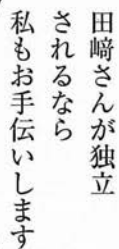 田﨑さんが独立
されるなら
私もお手伝いします